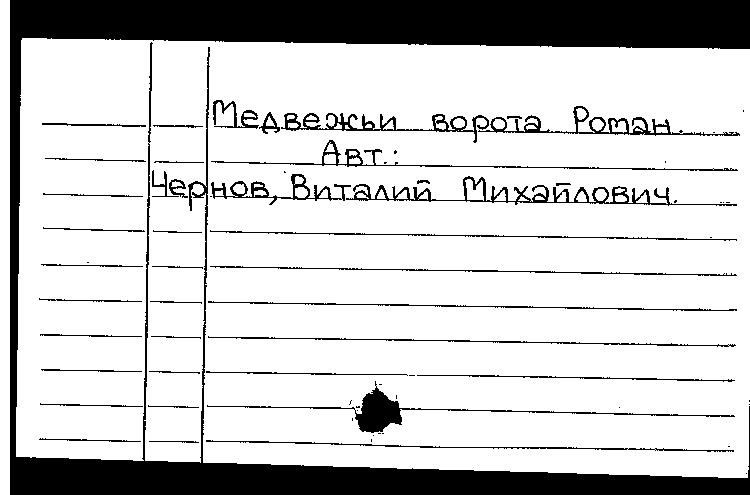 Медвежьи ворота. Роман.
Авт.:
Чернов, Виталий Михайлович.